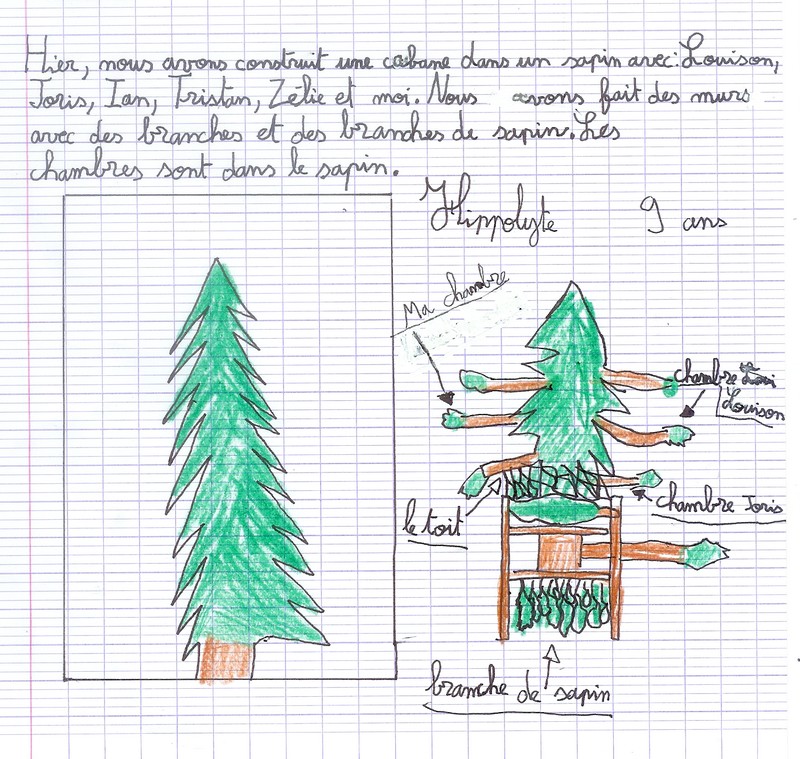 Hier, nous avons construit une cabane dans un sapin avec: Louison,
Joris, Ian, Tristan, Zélie et moi. Nous avons fait des murs
avec des branches et des branches de sapin. Les
chambres sont dans le sapin.
Hippolyte 9 ans
Ma chambre
chambre
Louison
chambre Joris
le toit
branche de sapin